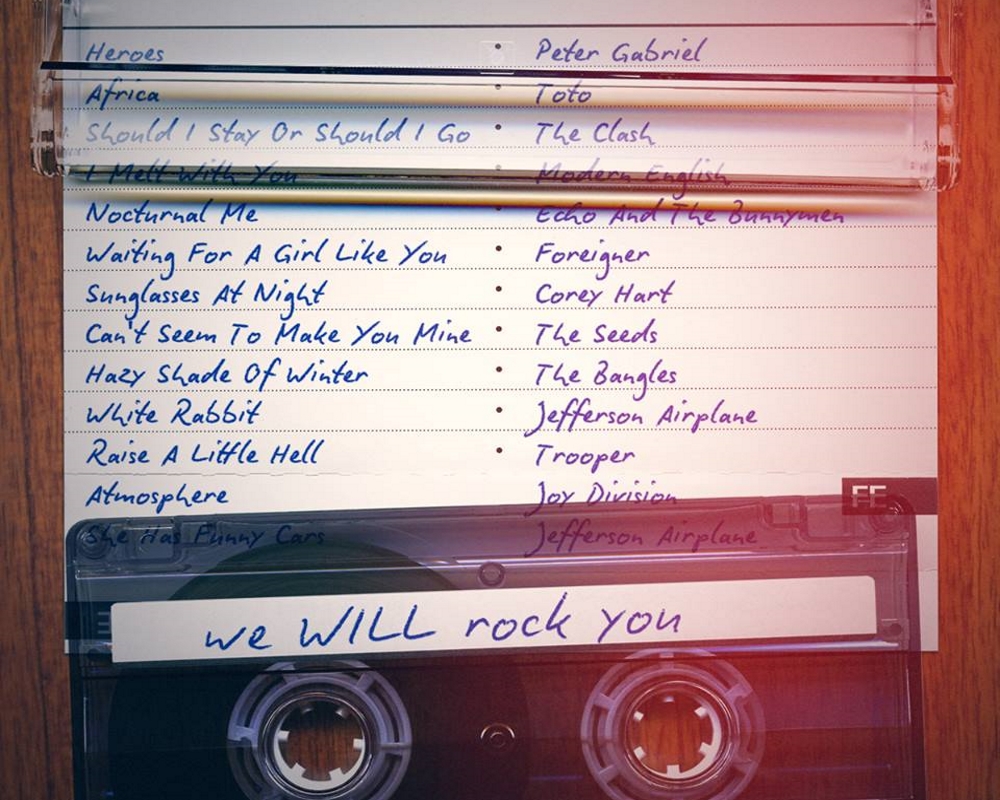 Heroes • Peter Gabriel
Africa • Toto
Should I Stay Or Should I Go • The Clash
I Melt With You Modern English
Nocturnal Me • Echo And The Bunnymen
Waiting For A Girl Like You • Foreigner
Sunglasses At Night • Corey Hart
Can't Seem To Make You Mine • The Seeds
Hazy Shade Of Winter • The Bangles
White Rabbit • Jefferson Airplane
Raise A Little Hell • Trooper
Atmosphere Joy Division
She Has Funny Cars Jefferson Airplane
we WILL rock you